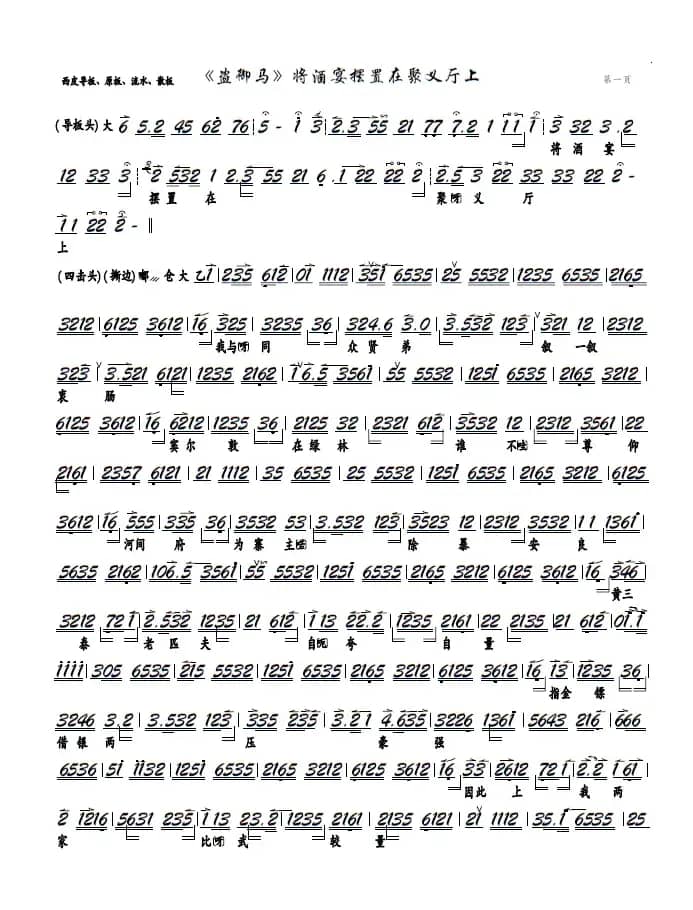 西皮导板、原板、流水、散板 《盗御马》将酒宴摆置在聚义厅上 第一页
(导板头)大 6 5.2 45 62 76 | 5 - 1 3 | 2.3 55 21 77 7.2 1 11 1 | 3 32 3 .2
将 酒 宴
12 33 3 2 532 1 2.3 55 21 6 .1 22 22 2 | 2.5 3 22 33 33 22 2 -
摆 置 在 聚(呃) 义 厅
11 22 2 - ‖
上
(四击头)(撕边)嘟 仓 大 乙1 | 235 612 | 01 1112 | 351 6535 | 25 5532 | 1235 6535 | 2165
3212 | 6125 3612 | 16 325 | 3235 36 | 324.6 3.0 | 3.532 123 | 321 12 | 2312
我与(呃) 同 众 贤 弟 叙 一叙
323 3.521 6121 | 1235 2162 | 16.5 3561 | 55 5532 | 1251 6535 | 2165 3212 |
衷 肠
6125 3612 | 16 6212 | 1235 36 | 2125 32 | 2321 612 | 3532 12 | 2312 3561 | 22
窦 尔 敦 在 绿 林 谁 不(哇) 尊 仰
2161 | 2357 6121 | 21 1112 | 35 6535 | 25 5532 | 1235 6535 | 2165 3212 | 6125
3612 | 16 555 | 335 36 | 3532 53 | 3.532 123 | 3523 12 | 2312 3532 | 11 1361 |
河间 府 为 寨 主(呃) 除 暴 安 良
5635 2162 | 106.5 3561 | 55 5532 | 1251 6535 | 2165 3212 | 6125 3612 | 16 346 |
黄三
3212 721 | 2.532 1235 | 21 612 | 113 22.2 | 1235 2161 | 22 2135 | 21 612 | 01.1 |
泰 老 匹 夫 自(呃) 夸 自 量
1111 | 305 6535 | 215 5532 | 1251 6535 | 2165 3212 | 6125 3612 | 16 13 | 1235 36 |
指金 镖
3246 3.2 | 3.532 123 | 335 235 | 3.21 4.635 | 3226 1361 | 5643 216 | 666
借 银 两 压 豪 强
6536 | 51 1132 | 1251 6535 | 2165 3212 | 6125 3612 | 16 33 | 2612 721 | 2.2 161 |
因此 上 我 两
2 1216 | 5631 235 | 113 23.2 | 1235 2161 | 2135 6121 | 21 1112 | 35.1 6535 | 25
家 比(呃) 武 较 量